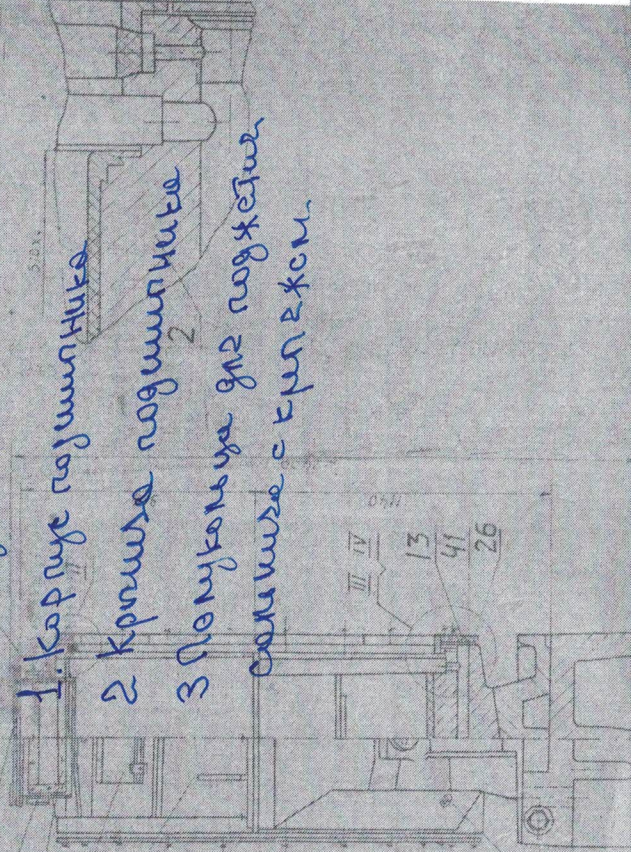 1. Корпус подшипника
2 Крышка подшипника
3 Полукольца для поджатия
сальника с креп
2
II
1140
III IV
13
41
26